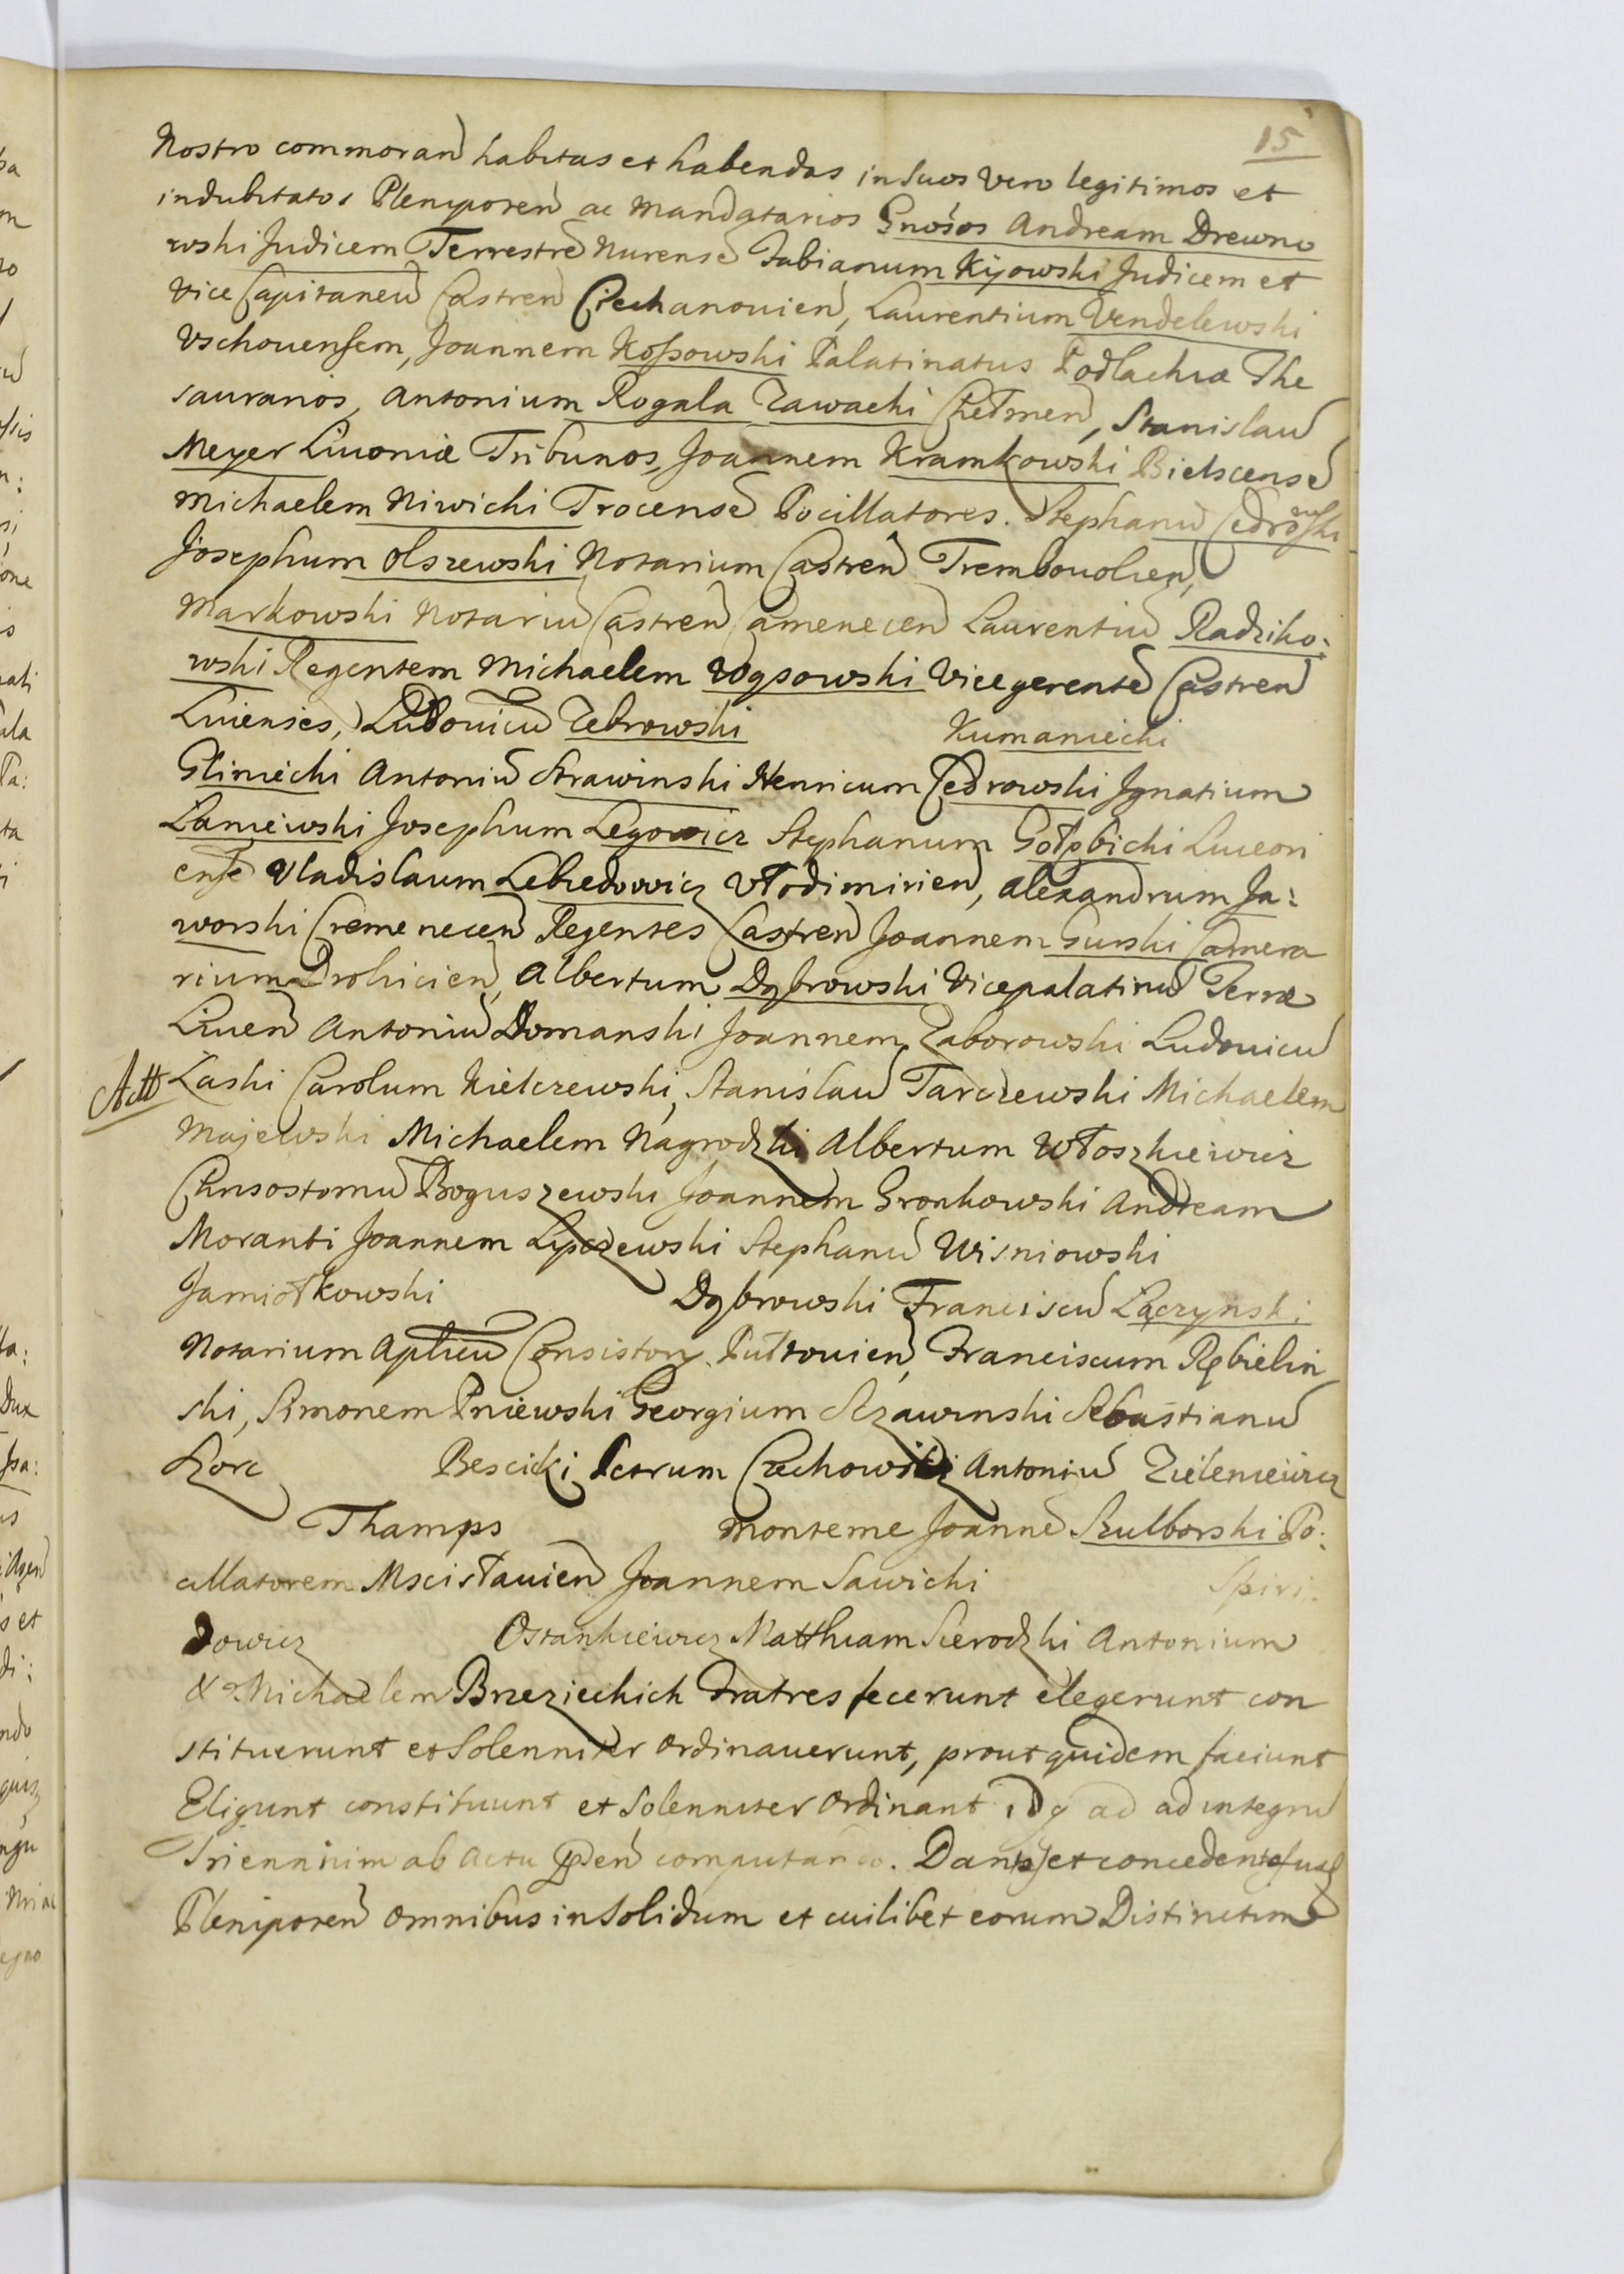 15
Nostro commoran habitas et habendas in Suos vero legitimos et
indubitatos Plenipoten ac Mandatarios Gnosos Andream Drewno
wski Judicem Terrestre Nurense Fabianum Kijowski Judicem et
Vice Capitaneu Castren Ciechanouien, Laurentium Vendelewski
Vschouensem, Joannem Kossowski Palatinatus Podlachiæ The
saurarios, Antonium Rogala Zawacki Chełmen, Stanislau
Meyer Liuoniæ Tribunos, Joannem Kramkowski Bielscense
Michaelem Niwicki Trocense Pocillatores. Stephanu Cedrowski
Josephum Olszewski Notarium Castren Trembouolien,
Markowski Notariu Castren Camenecen Laurentiu Radziko:
wski Regentem Michaelem Wąsowski Vicegerente Castren
Liuienses, Ludouicu Zebrowski Kumaniecki
Gliniecki Antoniu Strawinski Henricum Cedrowski Ignatium
Laniewski Josephum Legowicz Stephanum Gołąbicki Luceori
ense Vladislaum Lebiedowicz Włodimirien, Alexandrum Ja:
worski Cremenecen Regentes Castren Joannem Gurski Camera
rium Drohicien, Albertum Dąbrowski Vicepalatinu Terræ
Liuen Antoniu Domanski Joannem Zaborowski Ludouicu
Łaski Carolum Kielczewski, Stanislau Tarczewski Michaelem
Majewski Michaelem Nagrodzki Albertum Włoszkiewicz
Chrisostomu Boguszewski Joannem Gronkowski Andream
Moranti Joannem Lipczewski Stephanu Wisniowski
Jamiołkowski Dąbrowski Franciscu Łączynski
Notarium Aplicu Consistory Pułtouien, Franciscum Rębielin
ski, Simonem Pniewski Georgium Szawinski Sebastianu
Zorc Bescicki Petrum Czechowicz Antoniu Zieleniewicz
Thamps Monteme Joanne Szulborski Po:
cillatorem Mscisłauien Joannem Sawicki Spiri:
dowicz Ostankiewicz Matthiam Sierodzki Antonium
& Michaelem Brzezieckich Fratres fecerunt elegerunt con
stituerunt et Solenniter Ordinauerunt, prout quidem faciunt
Eligunt constituunt et Solenniter Ordinant idq ad ad integru
Triennium ab Actu pnten computando. Dantes et concedentes suis
Plenipoten Omnibus in Solidum et cuilibet eorum Distinctim